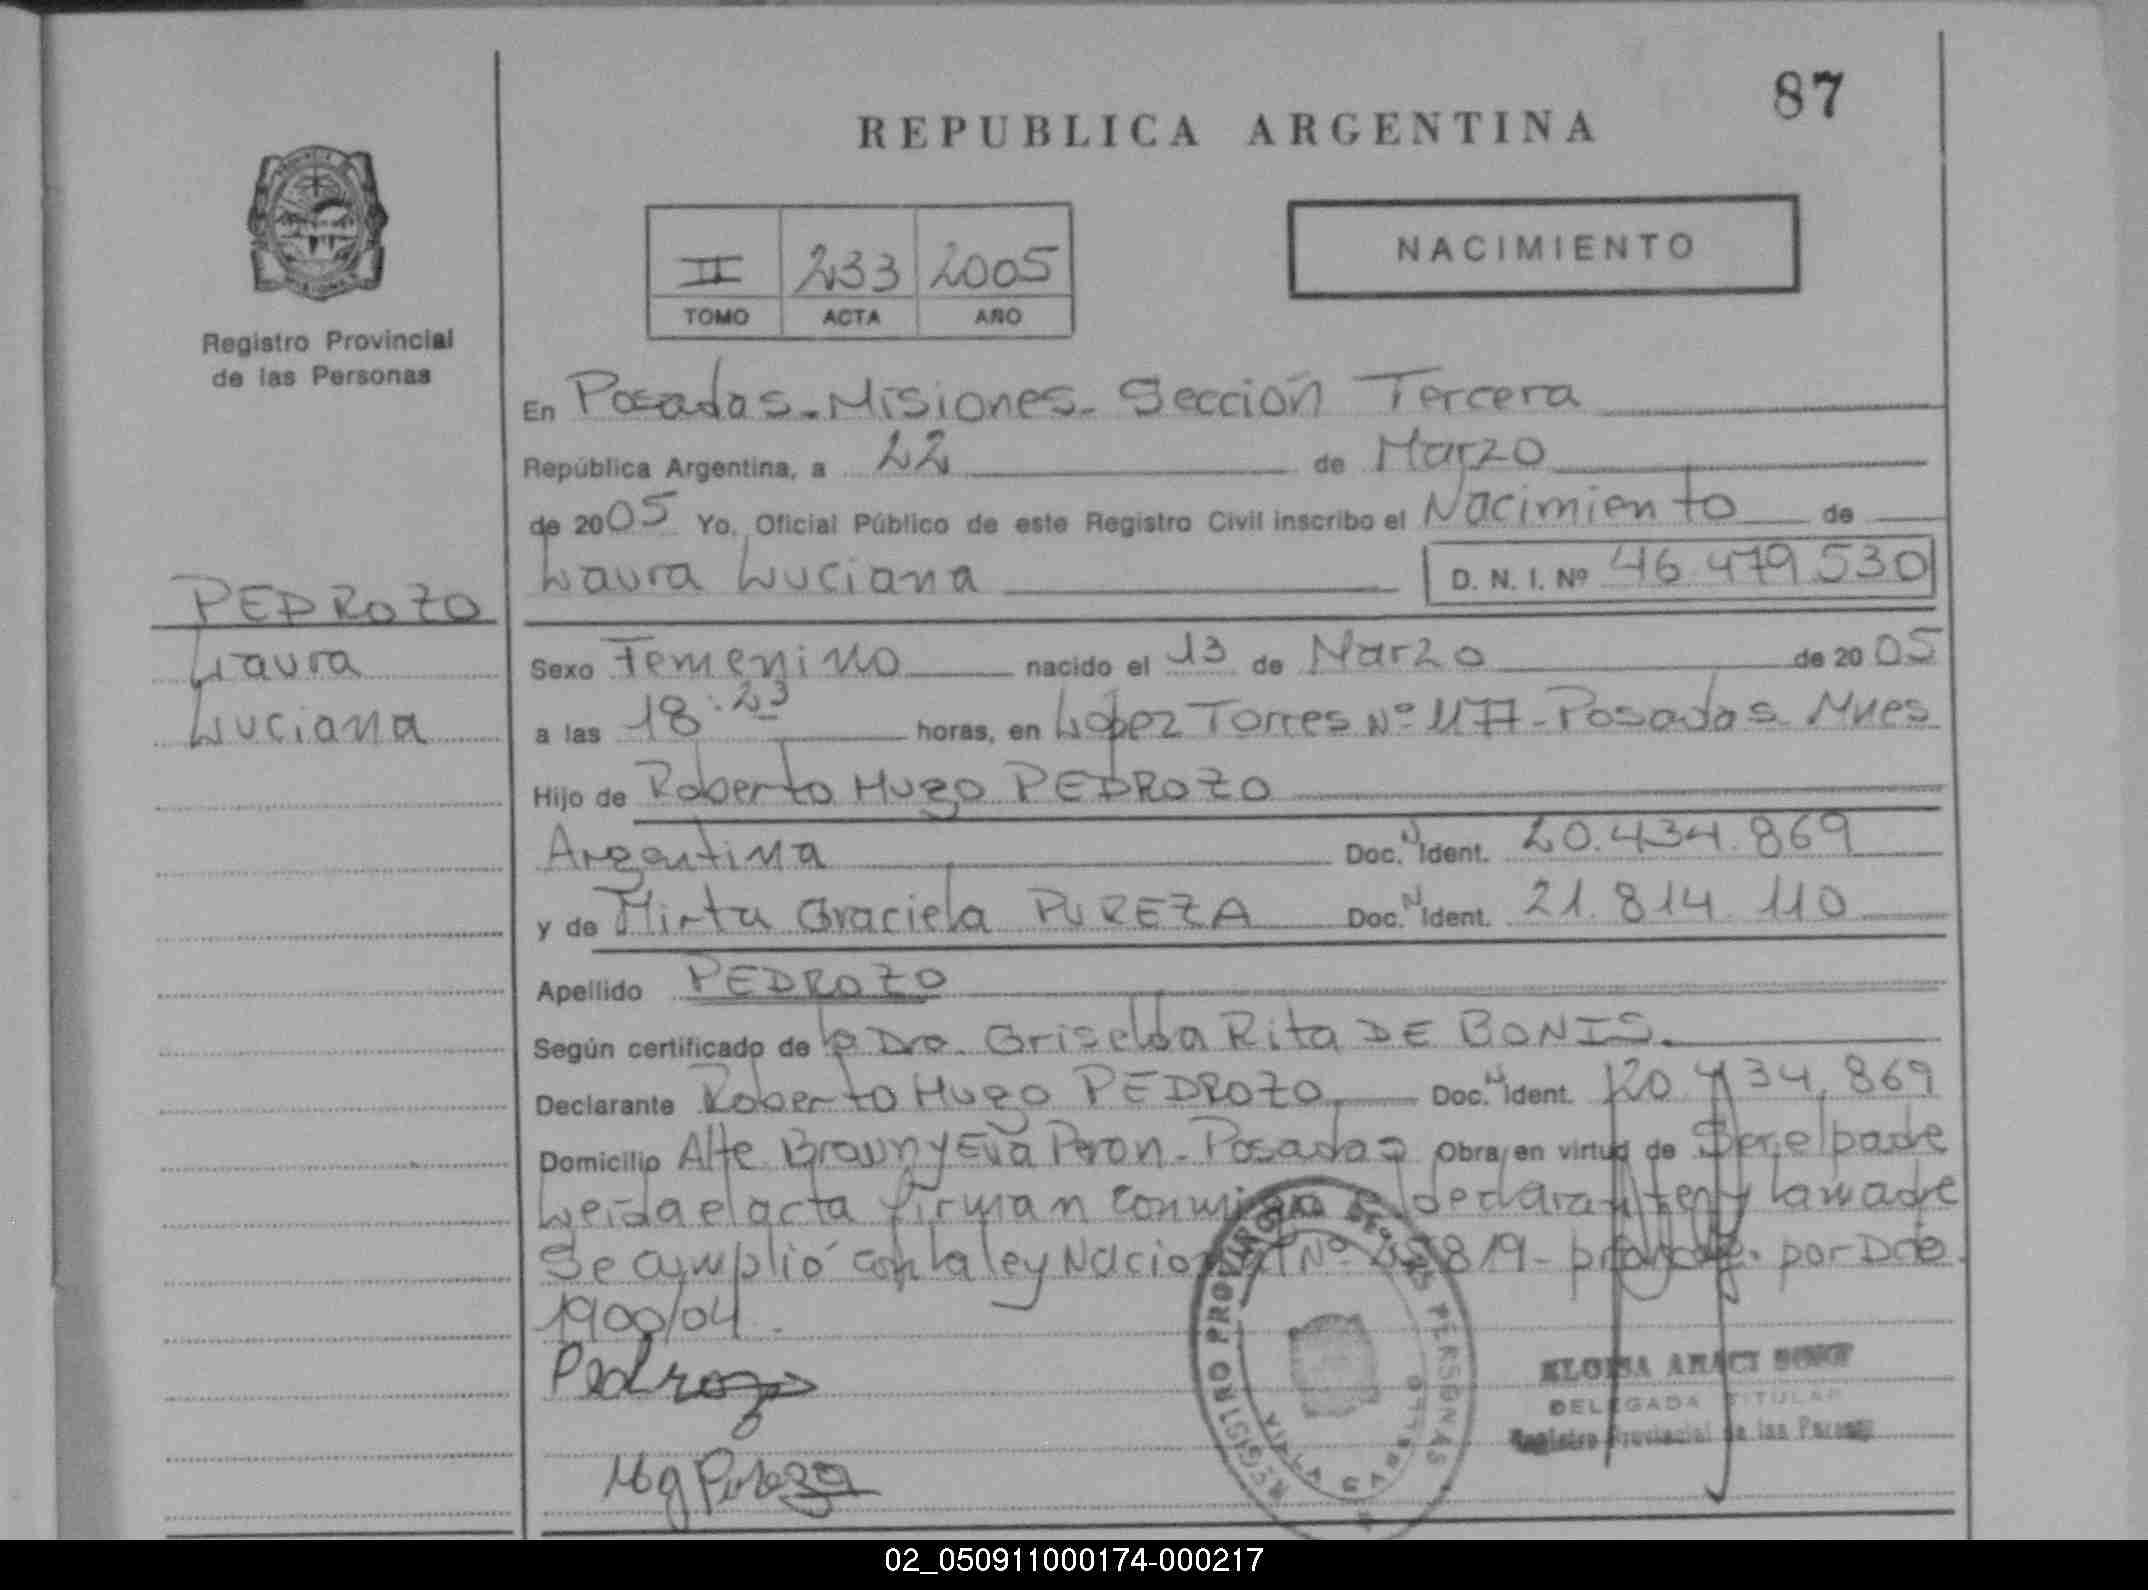 87
REPUBLICA ARGENTINA
II 233 2005
TOMO ACTA AÑO
NACIMIENTO
Registro Provincial
de las Personas
En Posadas - Misiones - Sección Tercera
República Argentina, a 22 de Marzo
de 2005 Yo, Oficial Público de este Registro Civil inscribo el Nacimiento de
Laura Luciana D. N. I. Nº 46 479 530
PEDROZO
Laura
Luciana
Sexo Femenino nacido el 13 de Marzo de 2005
a las 18:23 horas, en López Torres Nº 1177 - Posadas Mnes
Hijo de Roberto Hugo PEDROZO
Argentina Doc. N Ident. 20.434.869
y de Mirta Graciela PUREZA Doc. N Ident. 21.814.110
Apellido PEDROZO
Según certificado de la Dra. Griselda Rita DE BONIS.
Declarante Roberto Hugo PEDROZO Doc. N Ident. 20.434.869
Domicilio Alte Brown y Eva Peron - Posadas Obra en virtud de Ser el padre
Leída el acta firman conmigo el declarante y la madre
Se cumplió con la ley Nacional Nº 819 - por Dto
1900/04.
Pedrozo
Mg Pureza
REGISTRO PROVINCIAL DE LAS PERSONAS
VILLA CABELLO
DELEGADA TITULAR
Registro Provincial de las Personas
02_050911000174-000217